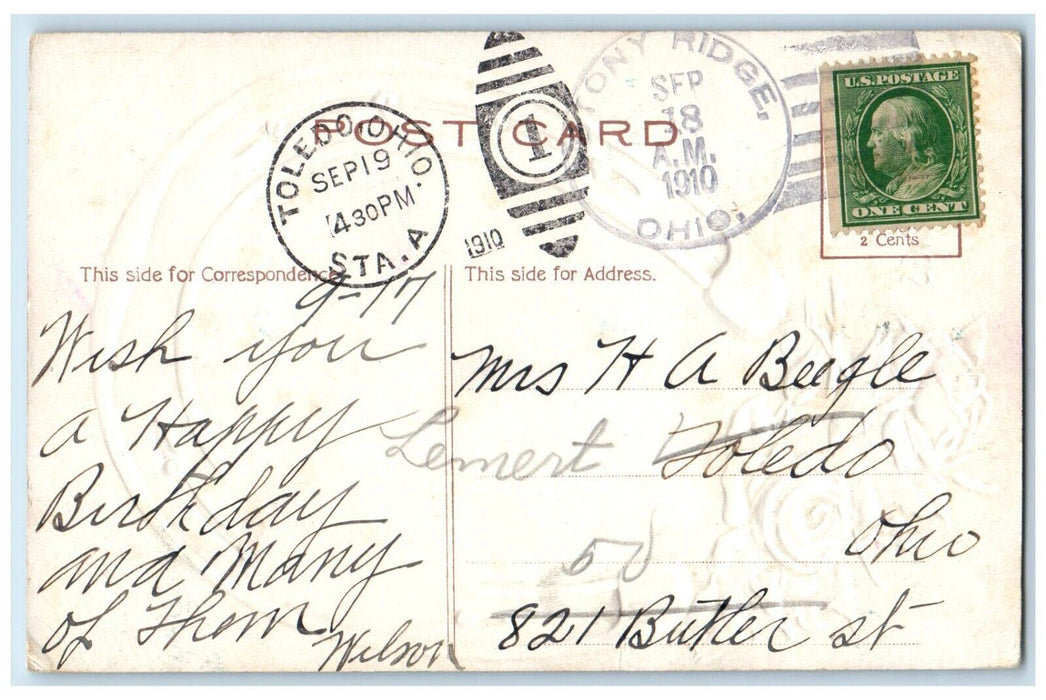 POST CARD
TOLEDO, OHIO.
SEP 19
430 PM
STA. A
1910
1
TONY RIDGE,
SEP
18
A.M.
1910
OHIO.
U.S. POSTAGE
ONE CENT
2 Cents
This side for Correspondence.
9-17
Wish you
a Happy
Birthday
and Many
of Them
Wilson
This side for Address.
Mrs H A Beegle
Lemert Toledo
Ohio
50
821 Butler st